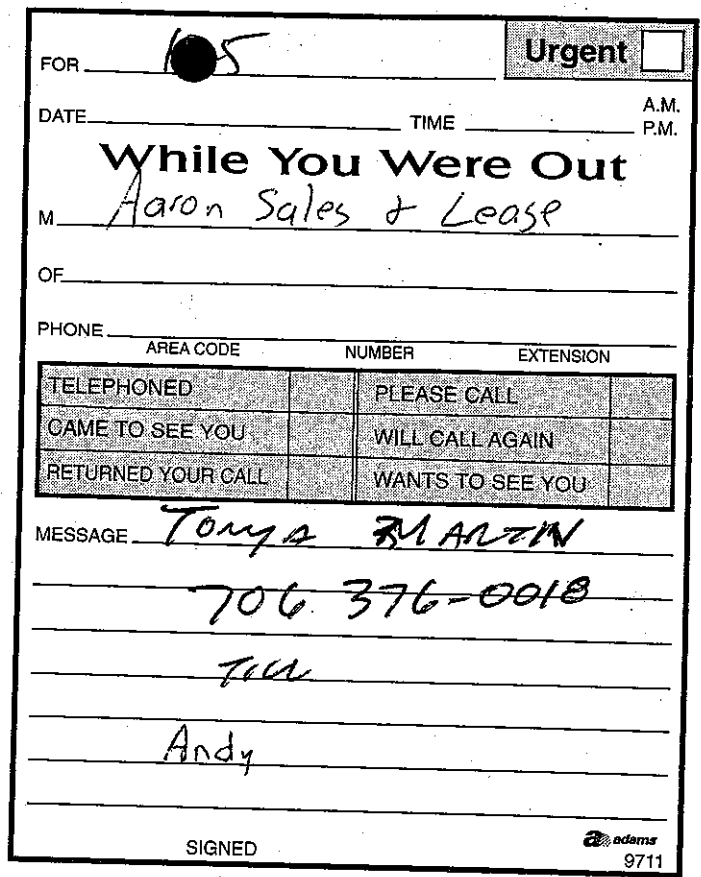 Urgent
FOR
DATE TIME A.M. P.M.
While You Were Out
M Aaron Sales & Lease
OF
PHONE
AREA CODE NUMBER EXTENSION
TELEPHONED PLEASE CALL
CAME TO SEE YOU WILL CALL AGAIN
RETURNED YOUR CALL WANTS TO SEE YOU
MESSAGE Tonya MARTIN
706 376-0018
Andy
SIGNED
adams
9711